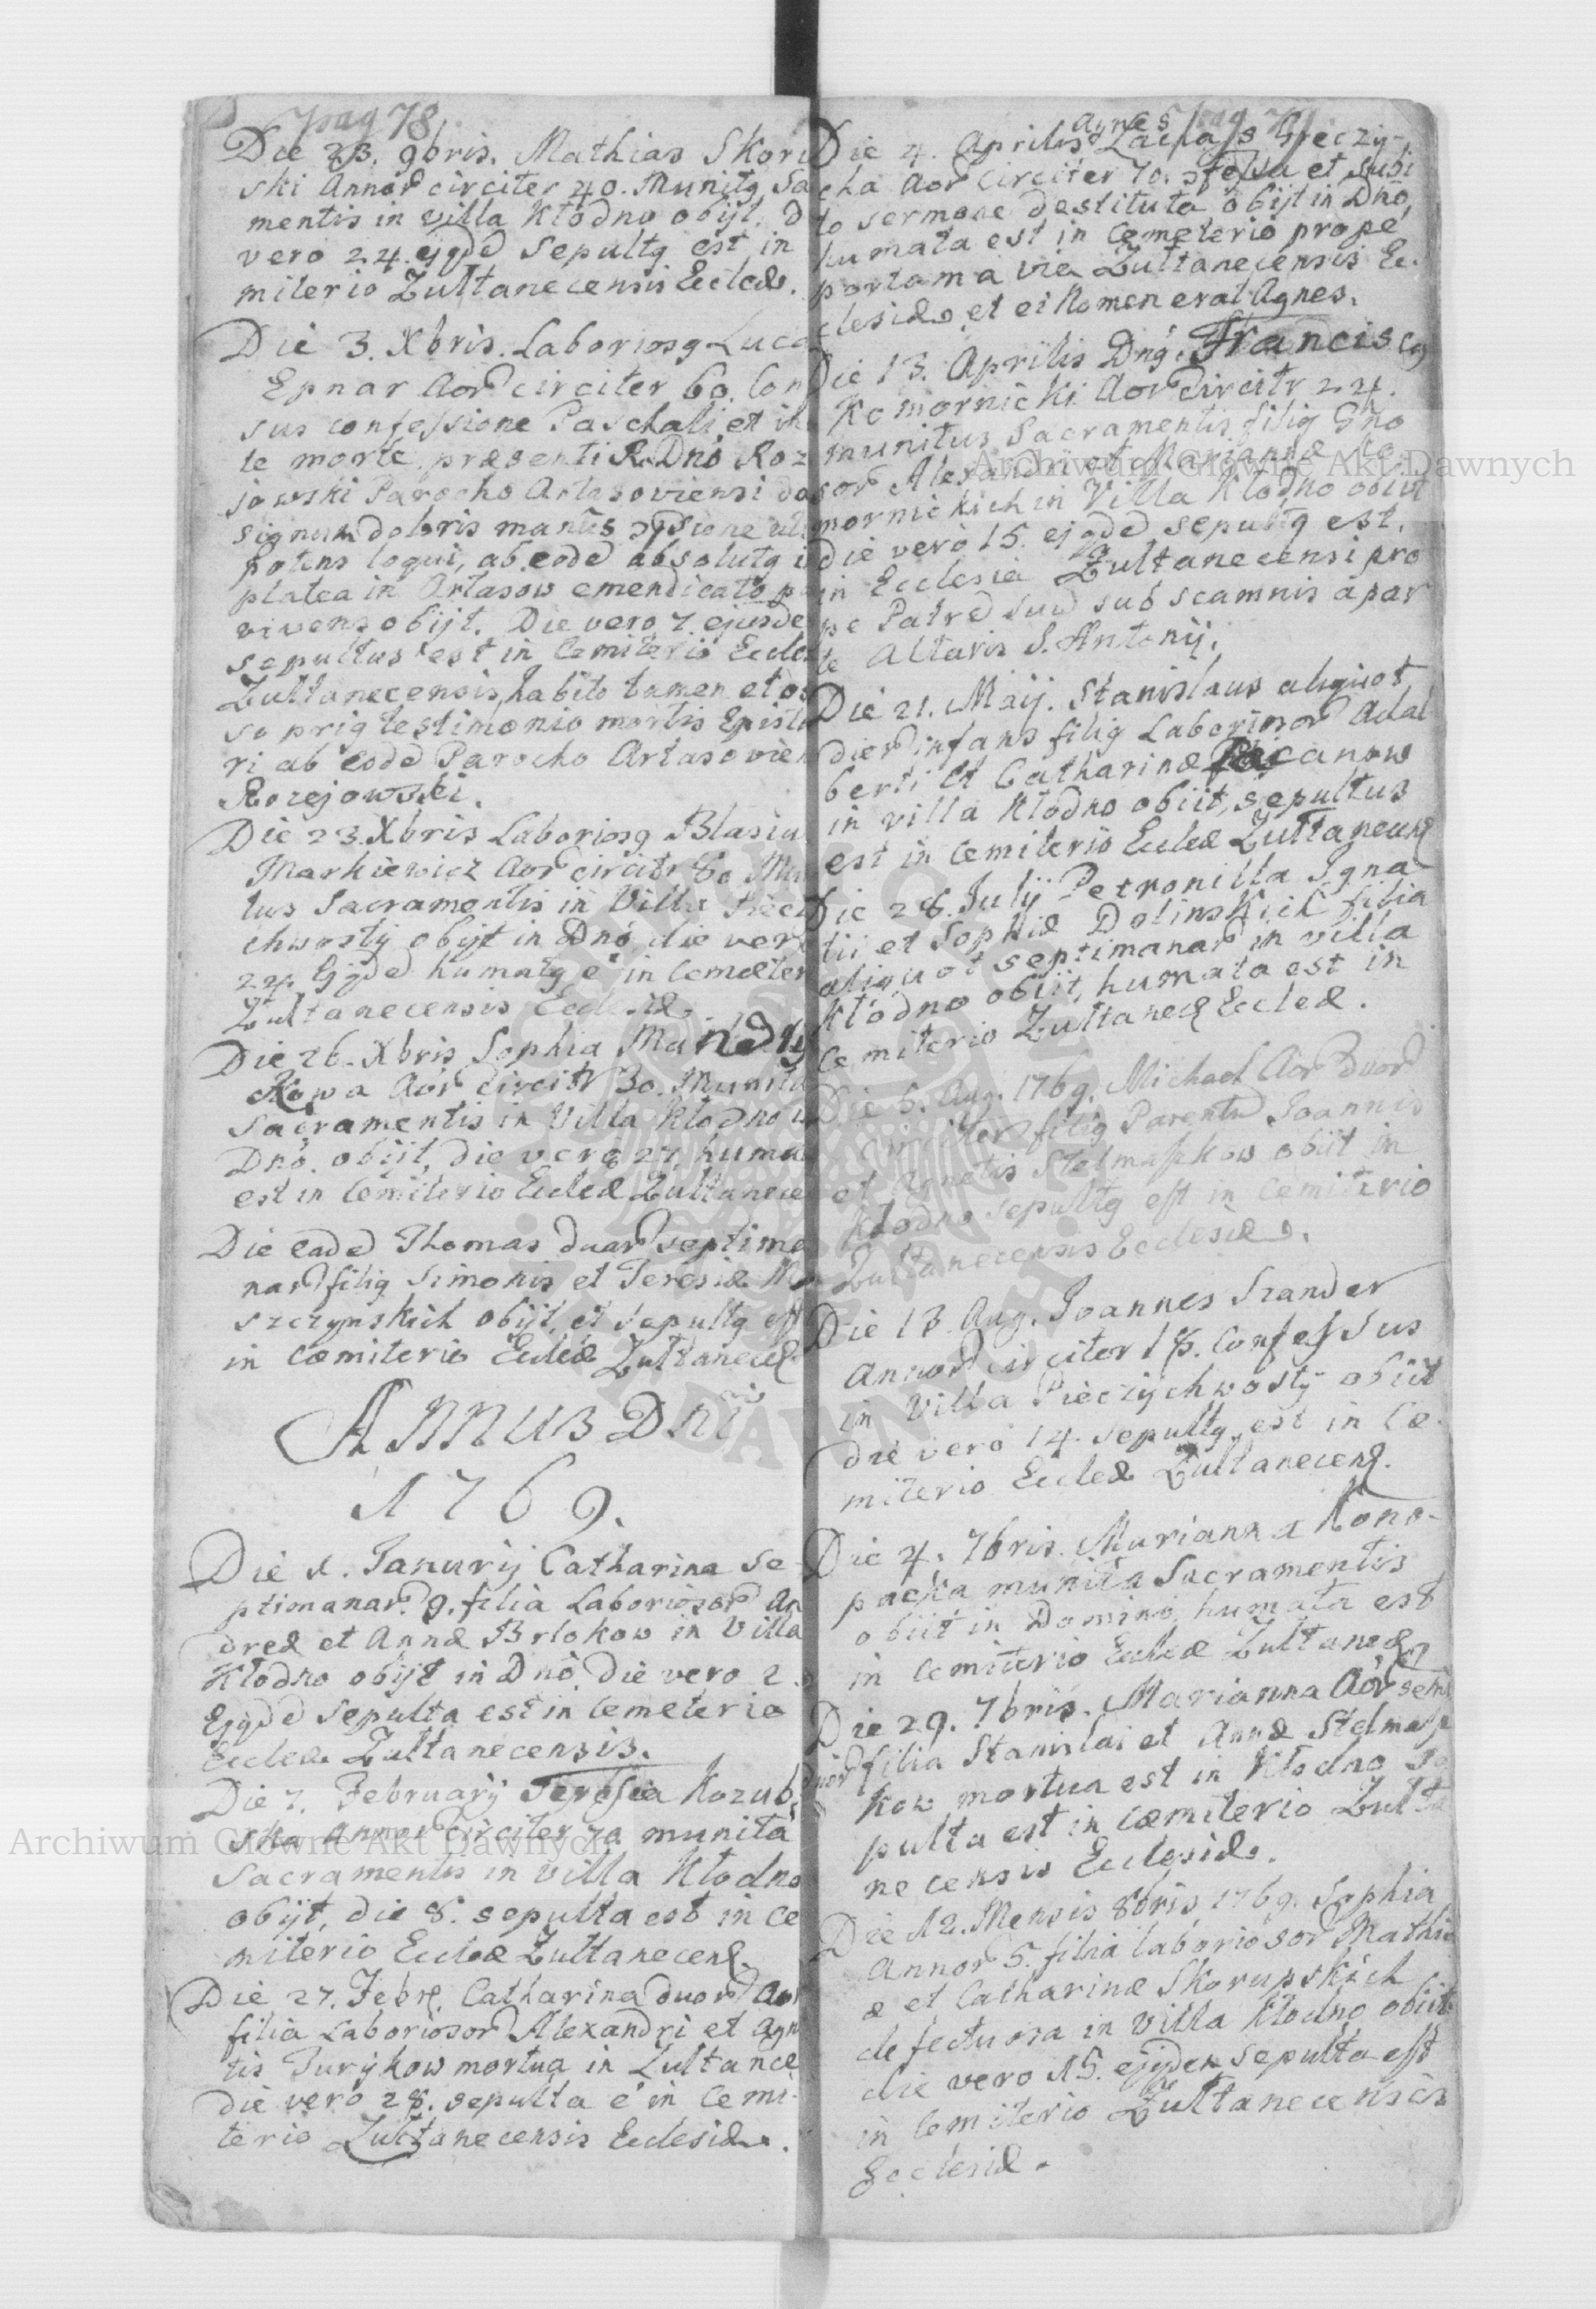 pag 78.
Die 23. 9bris. Mathias Skor
ski Annor circiter 40. Munitg Sa
mentis in villa Kłodno obijt. d
vero 24. ejqde sepultg est in
miterio Zułtanecensis Eccleæ.
Die 3. Xbris. Laboriosg Luca
Epnar Aor circiter 60. Con
sus confessione Paschali et in
te morte præsenti R. Dno Roz
jowski Parocho Artasoviensi do
signum doloris manus
potens loqui, ab eode absolutg i
platea in Artasow emendicato p
vivens obijt. Die vero 7. ejusde
sepultus est in Cemiterio Eccle
Zułtanecensis, habito tamen et
so prig testimonio mortis Episto
ri ab eode Parocho Artasovien
Rozejowski.
Die 23. Xbris Laboriosg Blasiu
Markiewicz Aor circitr 60 Mu
tus Sacramentis in Villa Piecz
chwosty obijt in Dno, die vero
24. Ejqde humatg e in Cemeter
Zułtanecensis Ecclesiæ.
Die 26. Xbris Sophia Mandry
kowa Aor circitr 30. Munita
Sacramentis in Villa Kłodno i
Dno. obijt, die vero 27. huma
est in Cemiterio Eccleæ Zułtanece
Die eade Thomas duar septima
nar filig Simonis et Teresiæ
szczynskich obijt, et sepultg est
in Cæmiterio Eccleæ Zułtanece
Annus Dni
1769.
Die 1. Janurij Catharina Se
ptimanar 9. filia Laboriosor An
dreæ et Annæ Brlokow in Villa
Kłodno obijt in Dno, Die vero 2.
Ejqde sepulta est in Cemeterio
Eccleæ Zułtanecensis.
Die 7. February Teresia Kozub
ska Annor circiter 70 munita
Sacramentis in villa Kłodno
obijt, die 8. sepulta est in Ce
miterio Eccleæ Zułtanecens.
Die 27. Febr. Catharina duor Aor
filia Laboriosor Alexandri et Agn
tis Jurykow mortua in Zułtance
die vero 28. sepulta e in Cemi
terio Zułtanecensis Ecclesiæ.
Agnes pag
Die 4. Aprilis Greczy-
cha Aor circiter 70. et subi
to sermone destituta obijt in Dno,
humata est in Cemeterio prope
portam a via Zułtanecensis Ec
clesiæ, et ei Nomen erat Agnes.
Die 13. Aprilis Dng. Franciscg
Komornicki Aor circitr 24.
munitus Sacramentis filig Gno
sor Alexandri et Mariannæ Ko
mornickich in Villa Kłodno obiit
die vero 15. ejqde sepultg est.
in Ecclesia Zułtanecensi pro
pe Patre suu sub scamnis a par
te Altaris S. Antonij.
Die 21. Maij. Stanislaus aliquot
dier infans filig Laboriosor Adal
berti et Catharinæ Pacanow
in villa Kłodno obiit, sepultus
est in Cemiterio Eccleæ Zułtanecens
Die 28. Julij Petronilla Igna
tii et Sophiæ Dolinskich filia
aliquot septimanar in villa
Kłodno obiit, humata est in
Cemiterio Zułtanece Eccleæ.
Die 5. Aug. 1769. Michael Aor Duor
circiter filig Parentu Joannis
et Agnetis Stelmaszkow obiit in
Kłodno sepultg est in Cemiterio
Zułtanecensis Ecclesiæ.
Die 13. Aug. Joannes Szander
Annor circiter 18. Confessus
in Villa Pieczychwosty obiit
die vero 14. sepultg est in Cæ-
miterio Eccleæ Zułtanecens.
Die 4. 7bris. Marianna Kono-
packa munita Sacramentis
obiit in Domino, humata est
in Cemiterio Eccleæ Zułtanece
Die 29. 7bris. Marianna Aor semi
duor filia Stanislai et Annæ Stelmasz
kow mortua est in Kłodno se
pulta est in Cæmiterio Zułta
necensis Ecclesiæ.
Die 12. Mensis 8bris 1769. Sophia
Annor 5. filia laboriosor Mathi
æ et Catharinæ Skorupskich
defectuosa in villa Kłodno obiit
die vero 15. ejqdem sepulta est
in Cemiterio Zułtanecensis
Ecclesiæ.
Archiwum Główne Akt Dawnych
Archiwum Główne Akt Dawnych